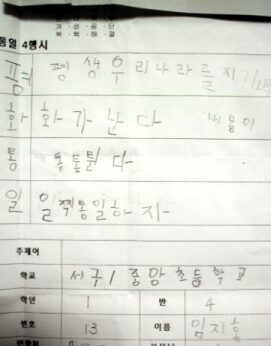 통일 4행시
평 평생우리나라를지키
화 화가난다
통 통통튄다
일 일찍통일하자
주제어
학교 서구1 중앙초등학교
학년 1 반 4
번호 13 이름 임지홍